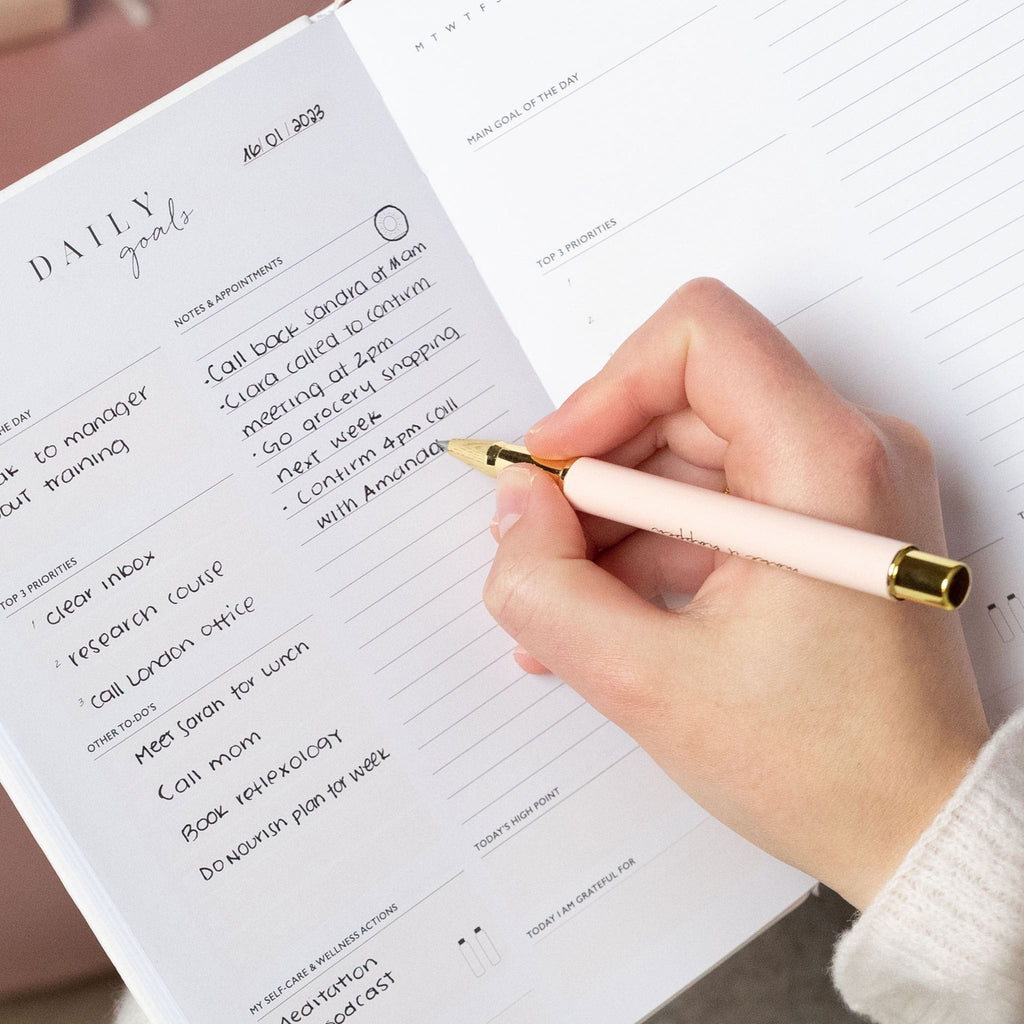 16/01/2023
DAILY
goals
THE DAY
to manager
training
TOP 3 PRIORITIES
1 clear inbox
2 research course
3 call London office
OTHER TO-DO'S
Meet Sarah for lunch
Call mom
Book reflexology
Do Nourish plan for week
MY SELF-CARE & WELLNESS ACTIONS
Meditation
NOTES & APPOINTMENTS
•Call back Sandra at 11am
•Clara called to confirm
meeting at 2pm
•Go grocery shopping
next week
•Confirm 4pm call
with Amanda
TODAY'S HIGH POINT
TODAY I AM GRATEFUL FOR
M T W T F S
MAIN GOAL OF THE DAY
TOP 3 PRIORITIES
1
2